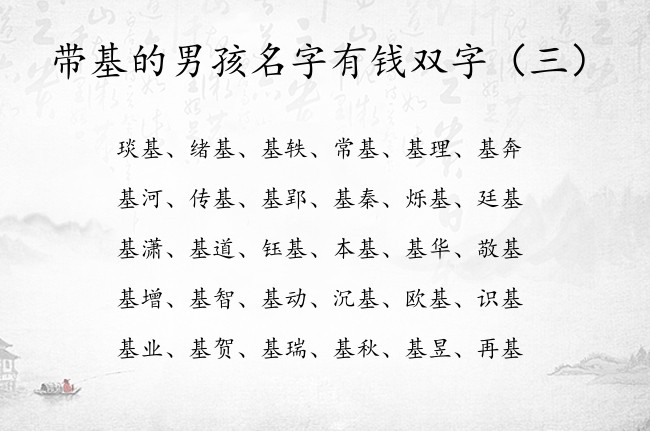 带基的男孩名字有钱双字（三）
琰基、绪基、基轶、常基、基理、基奔
基河、传基、基郢、基秦、烁基、廷基
基潇、基道、钰基、本基、基华、敬基
基增、基智、基动、沉基、欧基、识基
基业、基贺、基瑞、基秋、基昱、再基